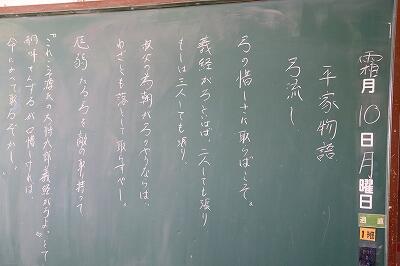 霜月10日月曜日
週直
1班
平家物語
弓流し
弓の惜しさに取らばこそ。
義経が弓といはば、二人しても張り
もしは三人しても張り、
叔父の為朝が弓のやうならば、
わざとも落として取らすべし。
尫弱たる弓を敵の取り持つて
『これこそ源氏の大将九郎義経が弓よ。』とて
嘲哢せんずるが口惜しければ、
命にかへて取るぞかし。